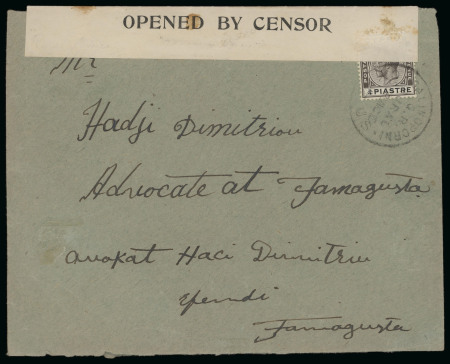 OPENED BY CENSOR
Mr
¼ PIASTRE
Hadji Dimitriou
Advocate at Famagusta
avokat Haci Dimitriu
yendi
Famagusta